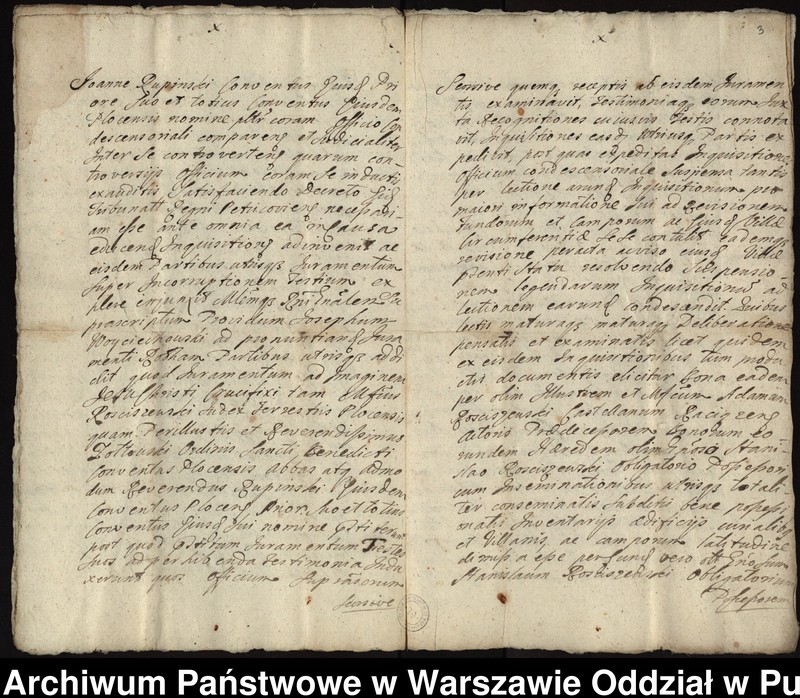 Joanne Rupinski Conventus Ejusd Pri
ore suo et totius Conventus Ejusdem
Plocensis nomine coram Officio Con
descensoriali comparens et Judicialiter
Inter Se controvertens quarum con
troversijs Officium coram Se inductis
exauditis Satisfaciendo Decreto
Tribunalis Regni Petricoviens necessari
am esse ante omnia ea in causa
educens Inquisitiones adinvenit ac
eisdem Partibus utrisqs Juramentum
super Incorruptionem Testium ex
plere injunxit
praescriptum Providum Josephum
Woyciechowski ad pronuntiand Jura
menti Rotham Partibus utrisqs addi
dit quod Juramentum ad Imaginem
Jesu Christi Crucifixi tam
Rosciszewski Judex Terrestris Plocensis
quam Perillustris et Reverendissimus
Zoltowski Ordinis Sancti Benedicti
Conventus Plocensis Abbas atq admo
dum Reverendus Rupinski Ejusdem
Conventus Plocens Prior suo et totius
Conventus Ejusd sui nomine
post quod Juramentum Testes
suos ad perhibenda testimonia Indu
xerunt quos Officium
Sensive
3
Sensive quemq receptis ab eisdem Juramen
tis examinavit, Testimoniaqs eorum Jux
ta Recognitiones cujusvis Testis connota
vit, Inquisitiones easd utriusq Partis ex
pedivit, post quas expeditas Inquisitiones
Officium condescensoriale Suspensa tantis
per lectione arund Inquisitionum pro
maiori informatione sui ad Revisionem
fundorum et Camporum ac Ejusd Villae
Circumferentiae Se se contulit eademqs
revisione peracta ac viso ejusd Villae
Statu resolvendo Suspensio
nem legendarum Inquisitionum ad
lectionem earund condescendit. Quibus
lectis maturaqs maturaqs Deliberatione
pensatis et examinatis licet quidem
ex eisdem Inquisitionibus tum produ
ctis documentis elicitur bona eadem
per olim Illustrem et Mficum Adamum
Rosciszewski Castellanum Raciązens
Actoris Praedecessorem bonorum eo
rundem Haeredem olim Stani
slao Rosciszewski Obligatorio Possessori
cum Inseminationibus utrisqs totali
ter conseminatis Subditis bene possessi
onatis Inventarijs aedificijs curialibus
et Villanis, ac Camporum latitudine
dimissa esse per eund vero olim Gnosum
Stanislaum Rosciszewski Obligatorium
Possessorem
Archiwum Państwowe w Warszawie Oddział w Pu